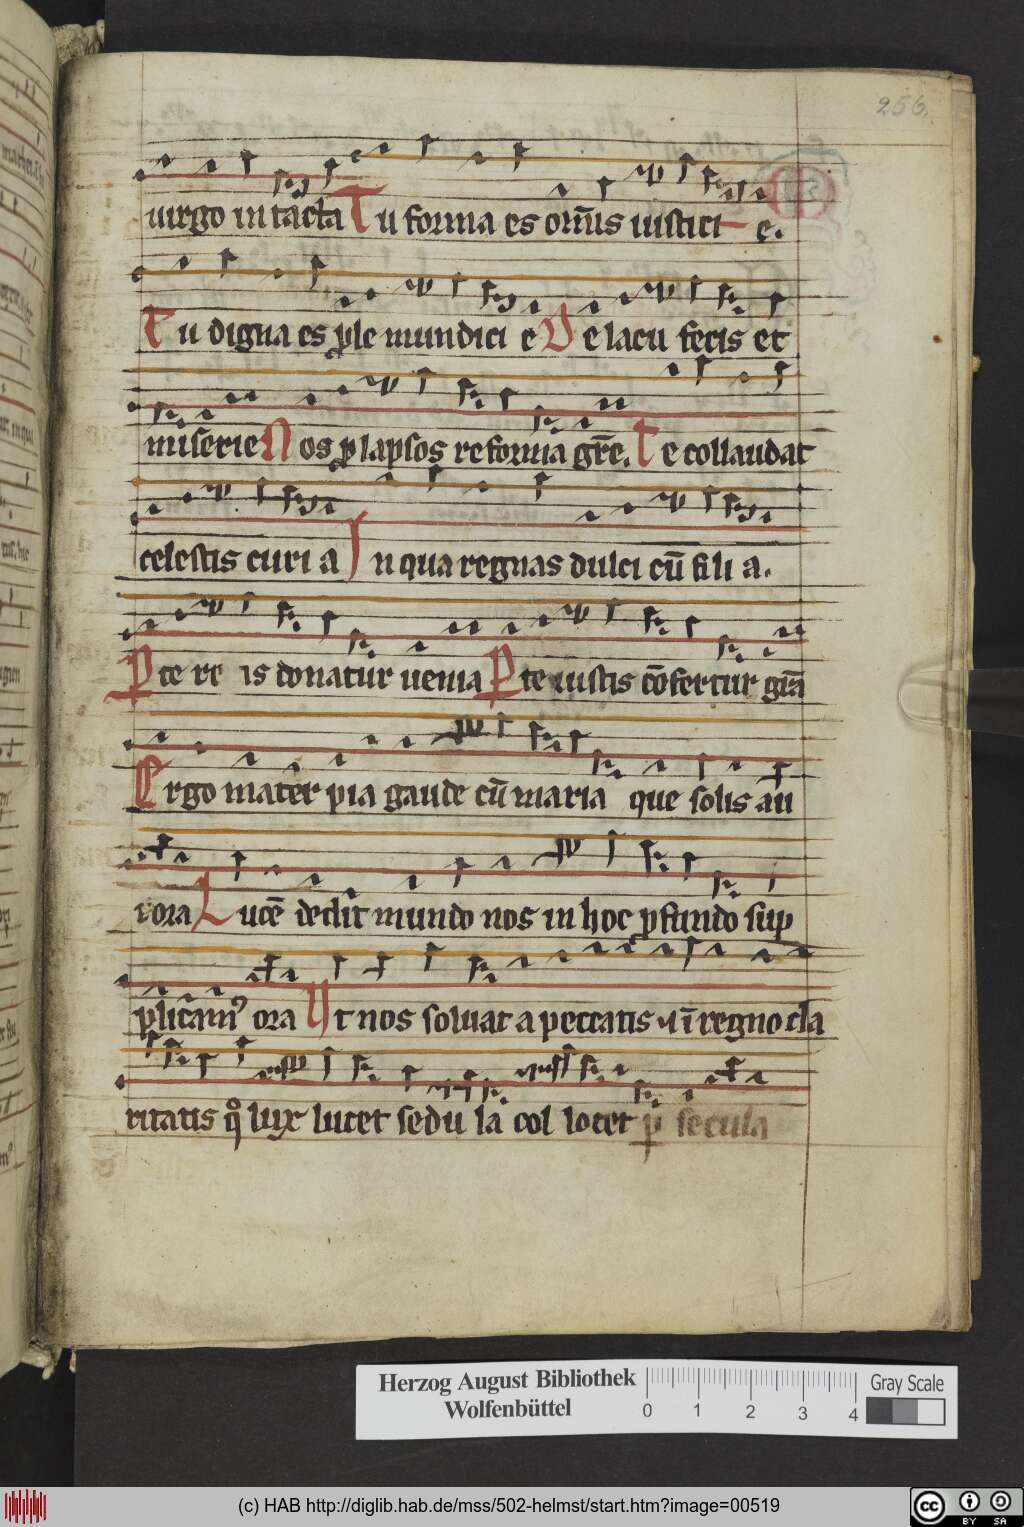 256.
uirgo intacta Tu forma es orñis iustici e.
Tu digna es ple mundici e De lacu fecis et
miserie Nos plapsos reforma gr̄e. Te collaudat
celestis curi a In qua regnas dulci cū fili a.
P te re is donatur uenia P te iustis cōfertur gr̄a
Ergo mater pia gaude cū maria que solis au
rora Lucē dedit mundo nos in hoc pfundo sup
plicam⁹ ora Ut nos soluat a peccatis ⁊ ī regno cla
ritatis qͦ lux lucet sedu la col locet p secula
Herzog August Bibliothek
Wolfenbüttel
0 1 2 3 4
Gray Scale
(c) HAB http://diglib.hab.de/mss/502-helmst/start.htm?image=00519
cc BY SA